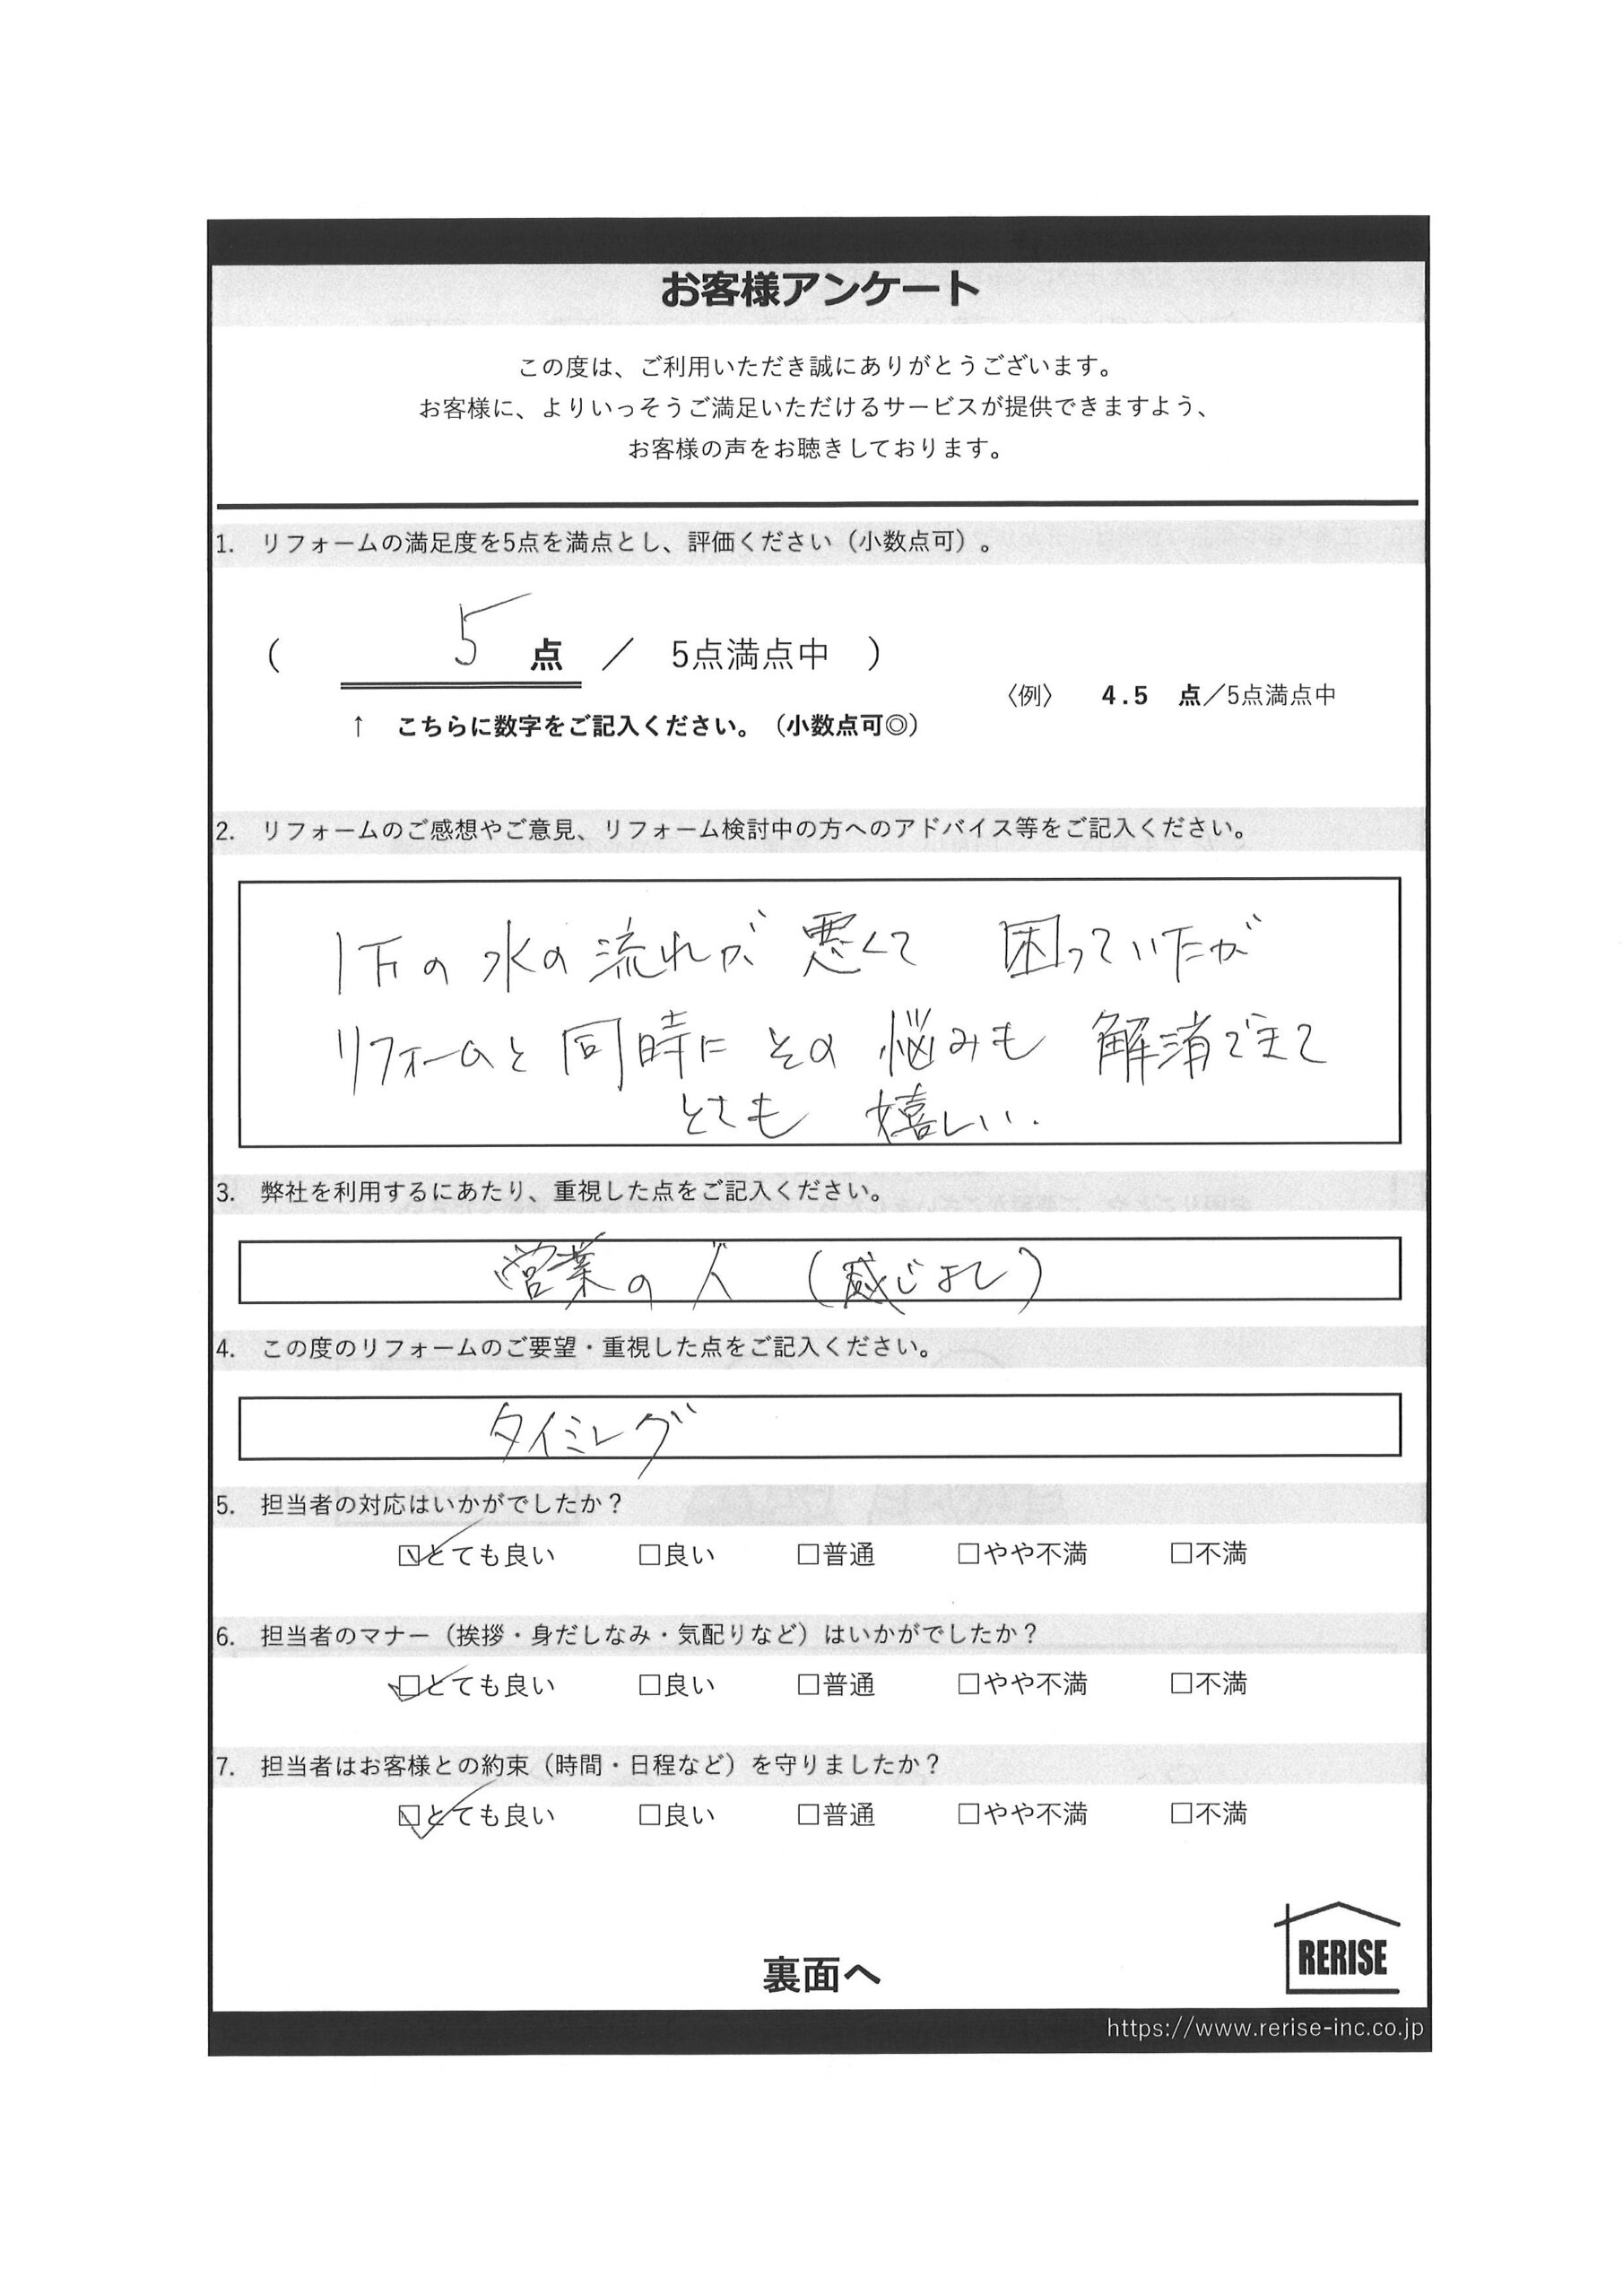 お客様アンケート
この度は、ご利用いただき誠にありがとうございます。
お客様に、よりいっそうご満足いただけるサービスが提供できますよう、
お客様の声をお聴きしております。
1. リフォームの満足度を5点を満点とし、評価ください（小数点可）。
（ 5 点 ／ 5点満点中 ）
〈例〉 4.5 点／5点満点中
↑ こちらに数字をご記入ください。（小数点可◎）
2. リフォームのご感想やご意見、リフォーム検討中の方へのアドバイス等をご記入ください。
の水の流れが悪くて 困っていたが
リフォームと同時にその悩みも解消できて
とても 嬉しい.
3. 弊社を利用するにあたり、重視した点をご記入ください。
営業の人 （感じよし）
4. この度のリフォームのご要望・重視した点をご記入ください。
タイミング
5. 担当者の対応はいかがでしたか？
☑とても良い □良い □普通 □やや不満 □不満
6. 担当者のマナー（挨拶・身だしなみ・気配りなど）はいかがでしたか？
☑とても良い □良い □普通 □やや不満 □不満
7. 担当者はお客様との約束（時間・日程など）を守りましたか？
☑とても良い □良い □普通 □やや不満 □不満
裏面へ
RERISE
https://www.rerise-inc.co.jp